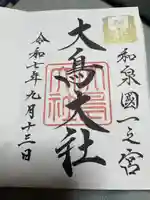 和泉國一之宮
大鳥大社
令和七年九月十三日